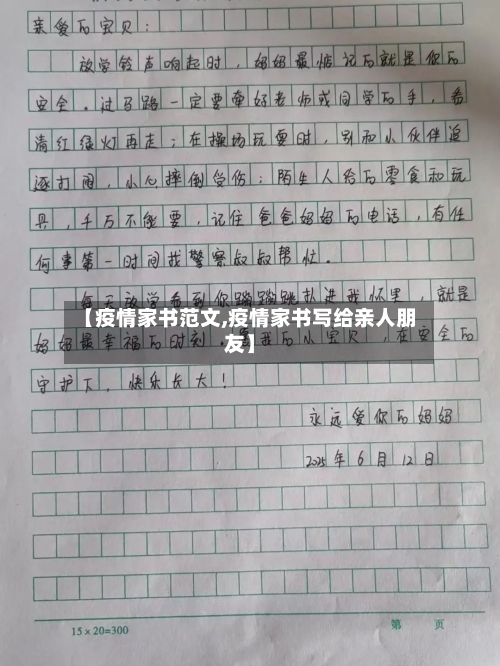 亲爱的宝贝：
放学铃声响起时，妈妈最惦记的就是你的
安全。过马路一定要牵好老师或同学的手，看
清红绿灯再走；在操场玩耍时，别和小伙伴追
逐打闹，小心摔倒受伤；陌生人给的零食和玩
具，千万不能要，记住爸爸妈妈的电话，有任
何事第一时间找警察叔叔帮忙。
每天放学看到你蹦蹦跳跳扑进我怀里，就是
【疫情家书范文,疫情家书写给亲人朋
妈妈最幸福的时刻。我的小宝贝，在安全的
友】
守护下，快乐长大！
永远爱你的妈妈
2025年6月12日
15×20=300
第 页